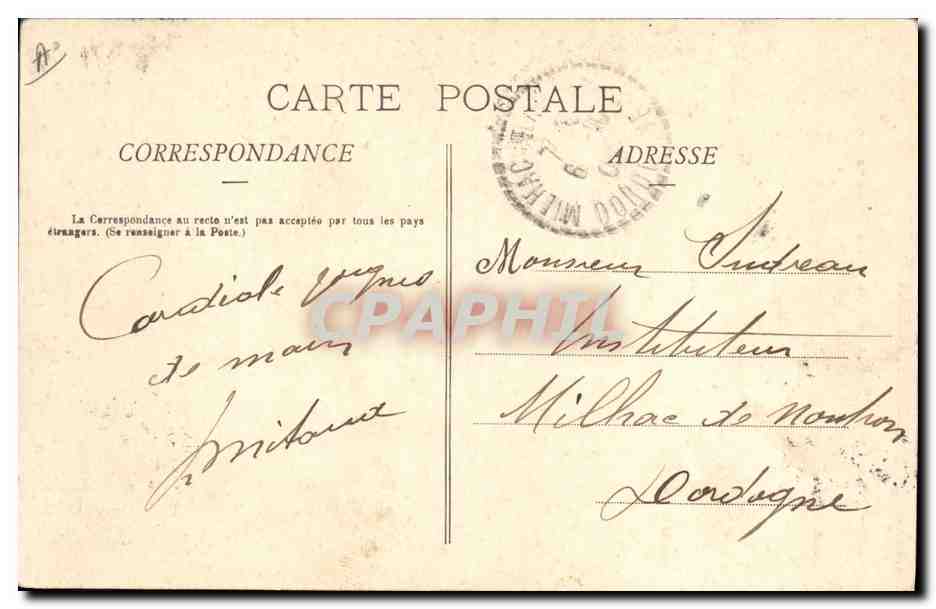 A
CARTE POSTALE
CORRESPONDANCE
La Correspondance au recto n'est pas acceptée par tous les pays
étrangers. (Se renseigner à la Poste.)
Cordiale
de main
ADRESSE
Monsieur
Instituteur
Milhac de Nontron
Dordogne
MILHAC
CPAPHIL